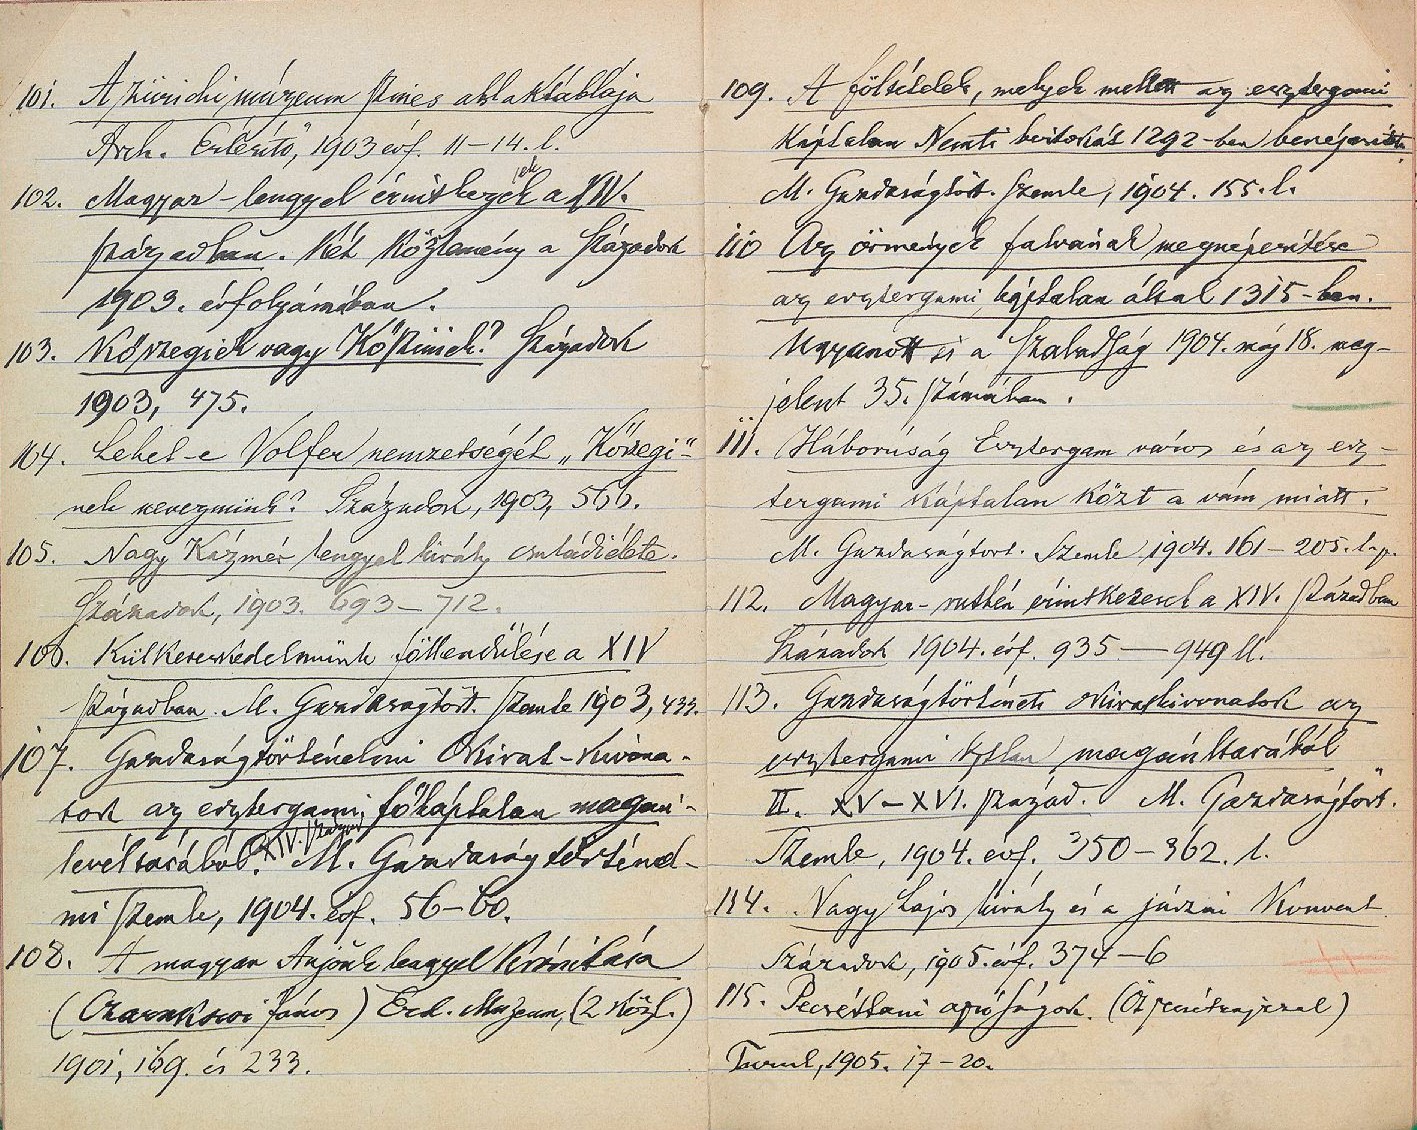 101. A zürichi múzeum színes ablaktáblája
Arch. Értesítő, 1903 évf. 11–14. l.
102. Magyar-lengyel érintkezések a XIV.
században. Két közlemény a Századok
1903. évfolyamában.
103. Kőszegiek vagy Kősziniek? Századok
1903, 475.
104. Lehet-e Volfer nemzetségét „Kőszegi"-
nek neveznünk? Századok, 1903, 566.
105. Nagy Kázmér lengyel király családi élete.
Századok, 1903. 693–712.
106. Külkereskedelmünk föllendülése a XIV
században. M. Gazdaságtört. Szemle 1903, 433.
107. Gazdaságtörténelmi Okirat-Kivona-
tok az esztergomi főkáptalan magán-
levéltárából. XIV. század M. Gazdaságtörténel-
mi Szemle, 1904. évf. 56–60.
108. A magyar Anjouk lengyel krónikása
(Czarnkowi János) Erd. Muzeum, (2 közl.)
1901, 169. és 233.
109. A föltételek, melyek mellett az esztergomi
káptalan Nemti birtokát 1292-ben benépesítette.
M. Gazdaságtört. Szemle, 1904. 155. l.
110 Az örmények falvának megnépesítése
az esztergomi káptalan által 1315-ben.
Ugyanott és a Szabadság 1904. máj 18. meg-
jelent 35. számában.
111. Háborúság Esztergam város és az esz-
tergami káptalan közt a vám miatt.
M. Gazdaságtört. Szemle 1904. 161–205. lap.
112. Magyar-ruthén érintkezések a XIV. században
Századok 1904. évf. 935–949 ll.
113. Gazdaságtörténeti okiratkivonatok az
esztergami kptlan magánltárából
II. XV–XVI. század. M. Gazdaságtört.
Szemle, 1904. évf. 350–362. l.
114. Nagy Lajos király és a jászai Konvent
Századok, 1905. évf. 374–6
115. Pecséttani apróságok. (Öt pecsétrajzzal)
Turul, 1905. 17–20.